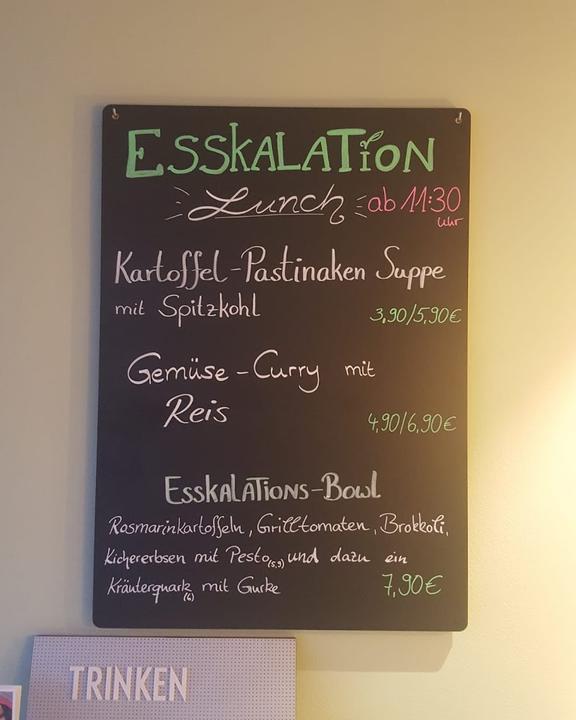 ESSKALATION
Lunch ab 11:30
Uhr
Kartoffel-Pastinaken Suppe
mit Spitzkohl 3,90/5,90€
Gemüse-Curry mit
Reis 4,90/6,90€
ESSKALATIONS-BOWL
Rasmarinkartoffeln, Grilltomaten, Brokkoli,
Kichererbsen mit Pesto(5,9) und dazu ein
Kräuterquark(6) mit Gurke 7,90€
TRINKEN